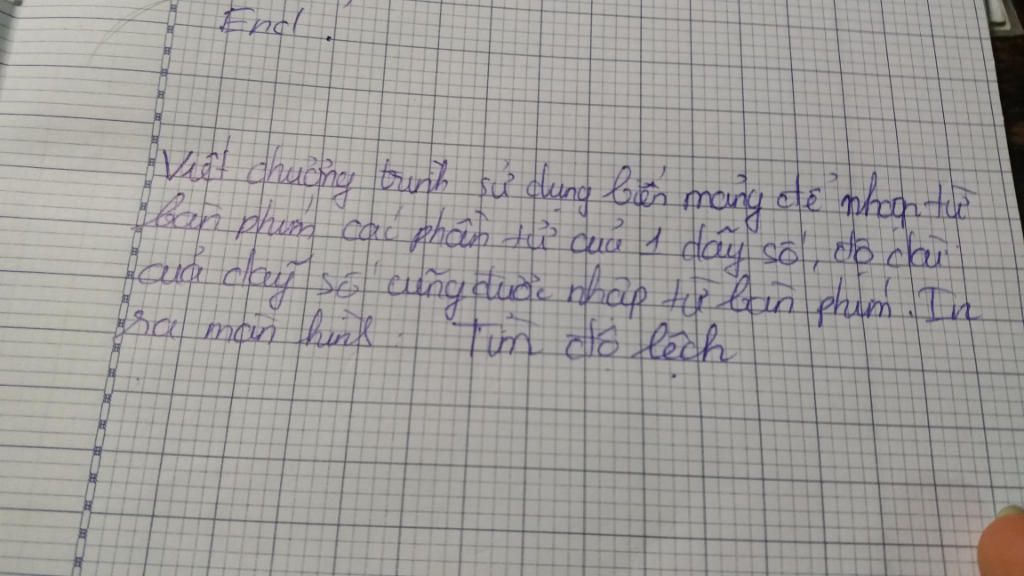 End.
Viết chương trình sử dụng biến mảng để nhập từ
bàn phím các phần tử của 1 dãy số, độ dài
của dãy số cũng được nhập từ bàn phím. In
ra màn hình. Tìm độ lệch